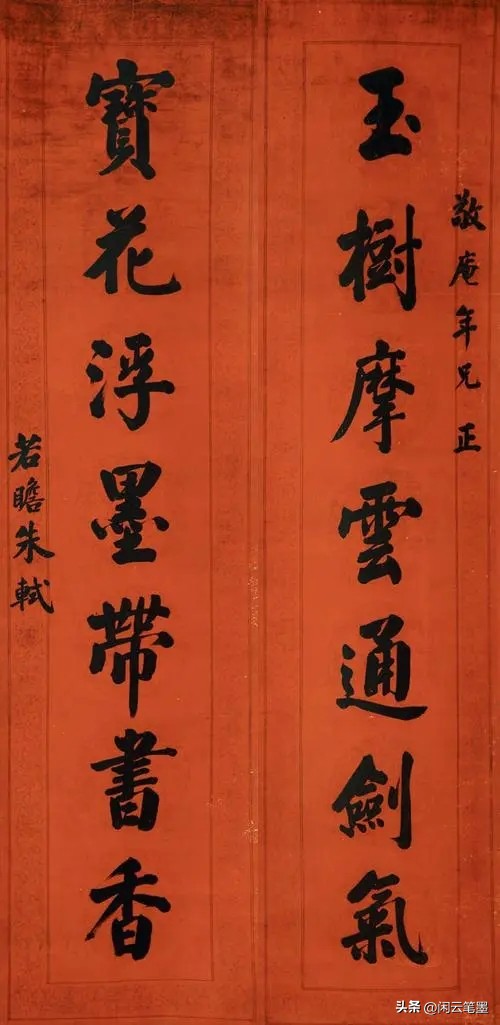 敬庵年兄正
玉樹摩雲通劍氣
寶花浮墨帶書香
若瞻朱軾
头条 @闲云笔墨